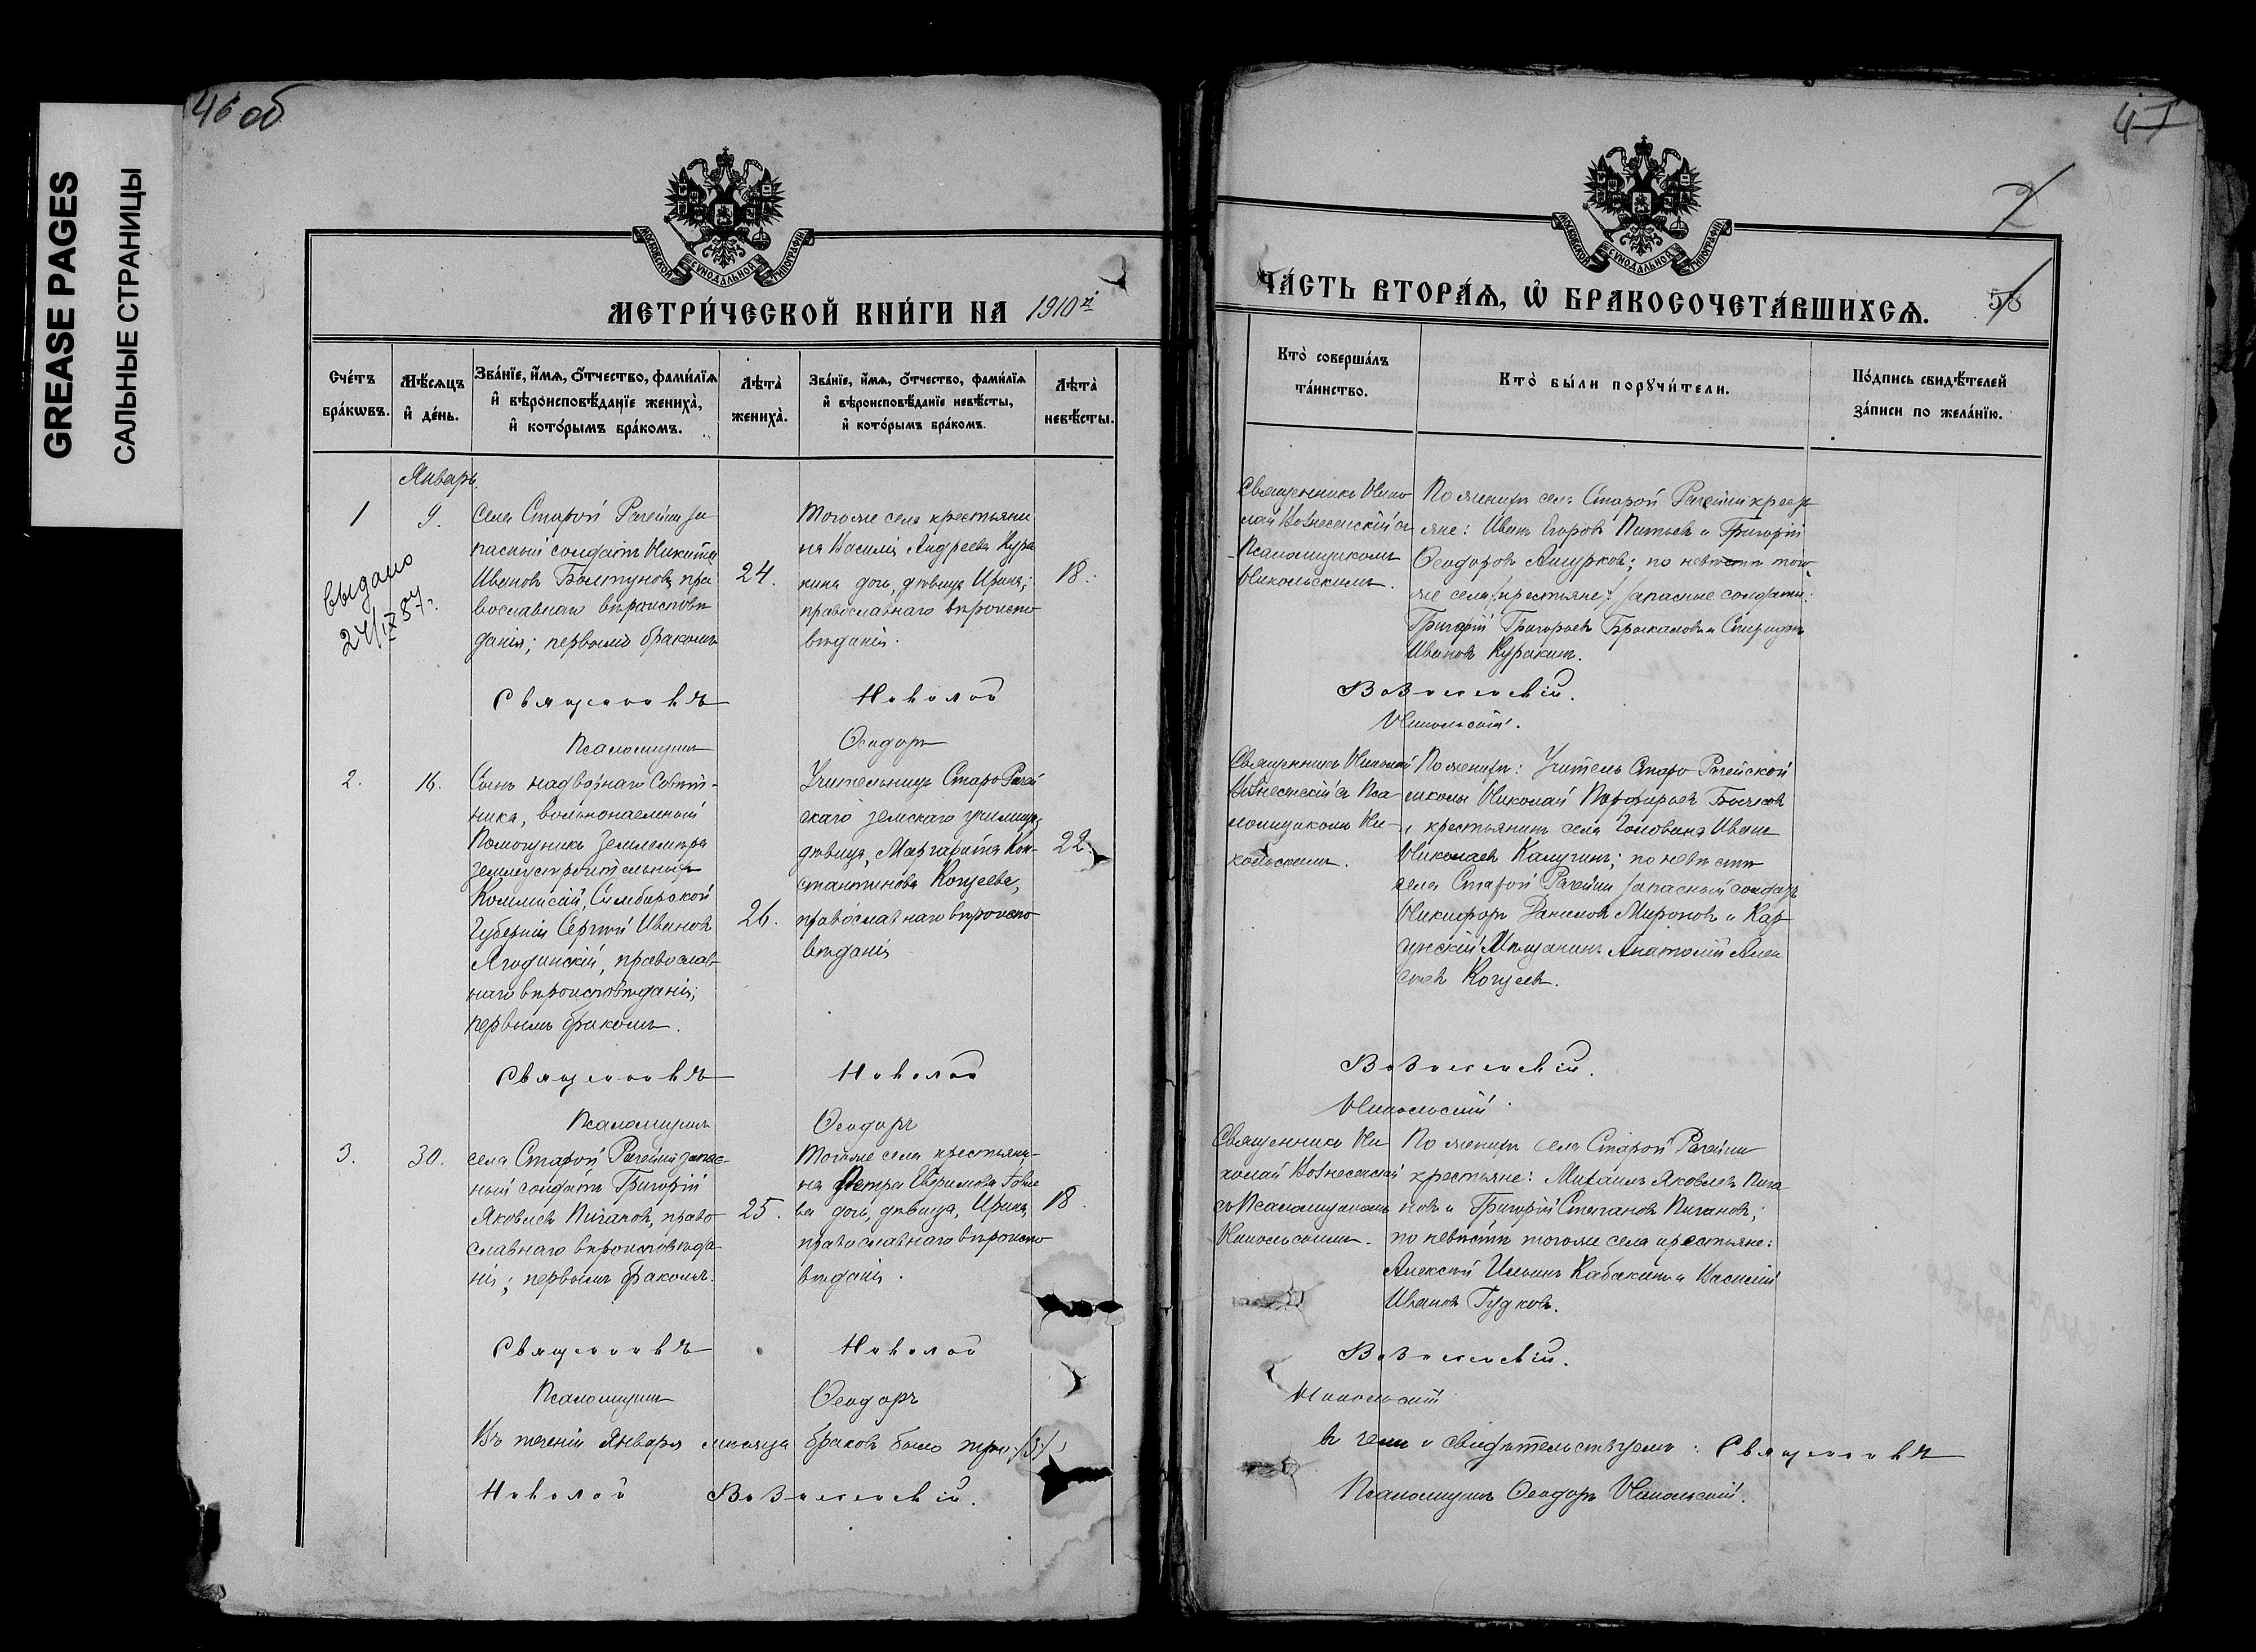 GREASE PAGES
САЛЬНЫЕ СТРАНИЦЫ
46 об
МОСКОВСКОЙ СѴНОДАЛЬНОЙ ТИПОГРАФІИ
МЕТРИ́ЧЕСКОЙ КНИ́ГИ НА 1910й
Сче́тъ бра́кѡвъ.
Мѣ́сѧцъ и҆ де́нь.
Зва́нїе, и҆́мѧ, ѻ҆́тчество, фами́лїѧ
и҆ вѣроисповѣ́данїе жениха̀,
и҆ кото́рымъ бра́комъ.
Лѣта̀ жениха̀.
Зва́нїе, и҆́мѧ, ѻ҆́тчество, фами́лїѧ
и҆ вѣроисповѣ́данїе невѣ́сты,
и҆ кото́рымъ бра́комъ.
Лѣта̀ невѣ́сты.
Январь.
1
9.
выдано
24/IX 57 г.
Села Старой Рачейки за
пасный солдатъ Никита
Ивановъ Болтуновъ, пра
вославнаго вѣроисповѣ
данія; первымъ бракомъ
24.
Того же села крестьяни
на Василія Андреева Кура
кина дочь, дѣвица Ирина;
православнаго вѣроиспо
вѣданія.
18.
Священникъ
Николай
Псаломщикъ
Ѳеодоръ
2.
16.
Сынъ надворнаго Совѣт-
ника, вольнонаемный
Помощникъ Землемѣра
Землеустроительныхъ
Коммисій, Симбирской
Губерніи Сергѣй Ивановъ
Ягодинскій, православ
наго вѣроисповѣданія;
первымъ бракомъ.
26.
Учительница Старо Рачей
скаго земскаго училища,
дѣвица, Маргарита Кон-
стантинова Кощеева,
православнаго вѣроиспо
вѣданія
22.
Священникъ
Николай
Псаломщикъ
Ѳеодоръ
3.
30.
села Старой Рачейки запас-
ный солдатъ Григорій
Яковлевъ Пичановъ, право
славнаго вѣроисповѣда
нія; первымъ бракомъ.
25.
Того же села крестьяни-
на Петра
ва дочь, дѣвица, Ирина,
православнаго вѣроиспо
вѣданія.
18.
Священникъ
Николай
Псаломщикъ
Ѳеодоръ
Въ теченіи Января мѣсяца браковъ было три /3/
Николай Вознесенскій.
47
2
58
МОСКОВСКОЙ СѴНОДАЛЬНОЙ ТИПОГРАФІИ
ЧА́СТЬ ВТОРА́Ѧ, Ѽ БРАКОСОЧЕТА́ВШИХСѦ.
Кто̀ соверша́лъ
та́инство.
Кто̀ бы́ли порꙋчи́тели.
По́дпись свидѣ́телей
за́писи по жела́нїю.
Священникъ Нико
лай Вознесенскій съ
Псаломщикомъ
Никольскимъ.
По женихѣ села Старой Рачейки кресть
яне: Иванъ Егоровъ Питьевъ и Григорій
Ѳеодоровъ Ашурковъ; по невѣстѣ того
же села крестьяне: запасные солдаты:
Григорій Григорьевъ Брыкаловъ и Спиридонъ
Ивановъ Куракинъ.
Вознесенскій.
Никольскій.
Священникъ Николай
Вознесенскій съ Пса
ломщикомъ Ни-
кольскимъ.
По женихѣ: Учитель Старо Рачейской
школы Николай Порфирьевъ Бычковъ
и крестьянинъ села Головина Иванъ
Николаевъ Калугинъ; по невѣстѣ
села Старой Рачейки запасный солдатъ
Никифоръ Даниловъ Мироновъ и Кар
сунскій Мѣщанинъ Анатолій Алек
сѣевъ Кощеевъ.
Вознесенскій.
Никольскій
Священникъ Ни
колай Вознесенскій
съ Псаломщикомъ
Никольскимъ.
По женихѣ села Старой Рачейки
крестьяне: Михаилъ Яковлевъ Пича
новъ и Григорій Степановъ Пичановъ;
по невѣстѣ того же села крестьяне:
Алексѣй Ильинъ Кабакинъ и Василій
Ивановъ Гудковъ.
Вознесенскій.
Никольскій
въ чемъ и свидѣтельствуемъ: Священникъ
Псаломщикъ Ѳеодоръ Никольскій.